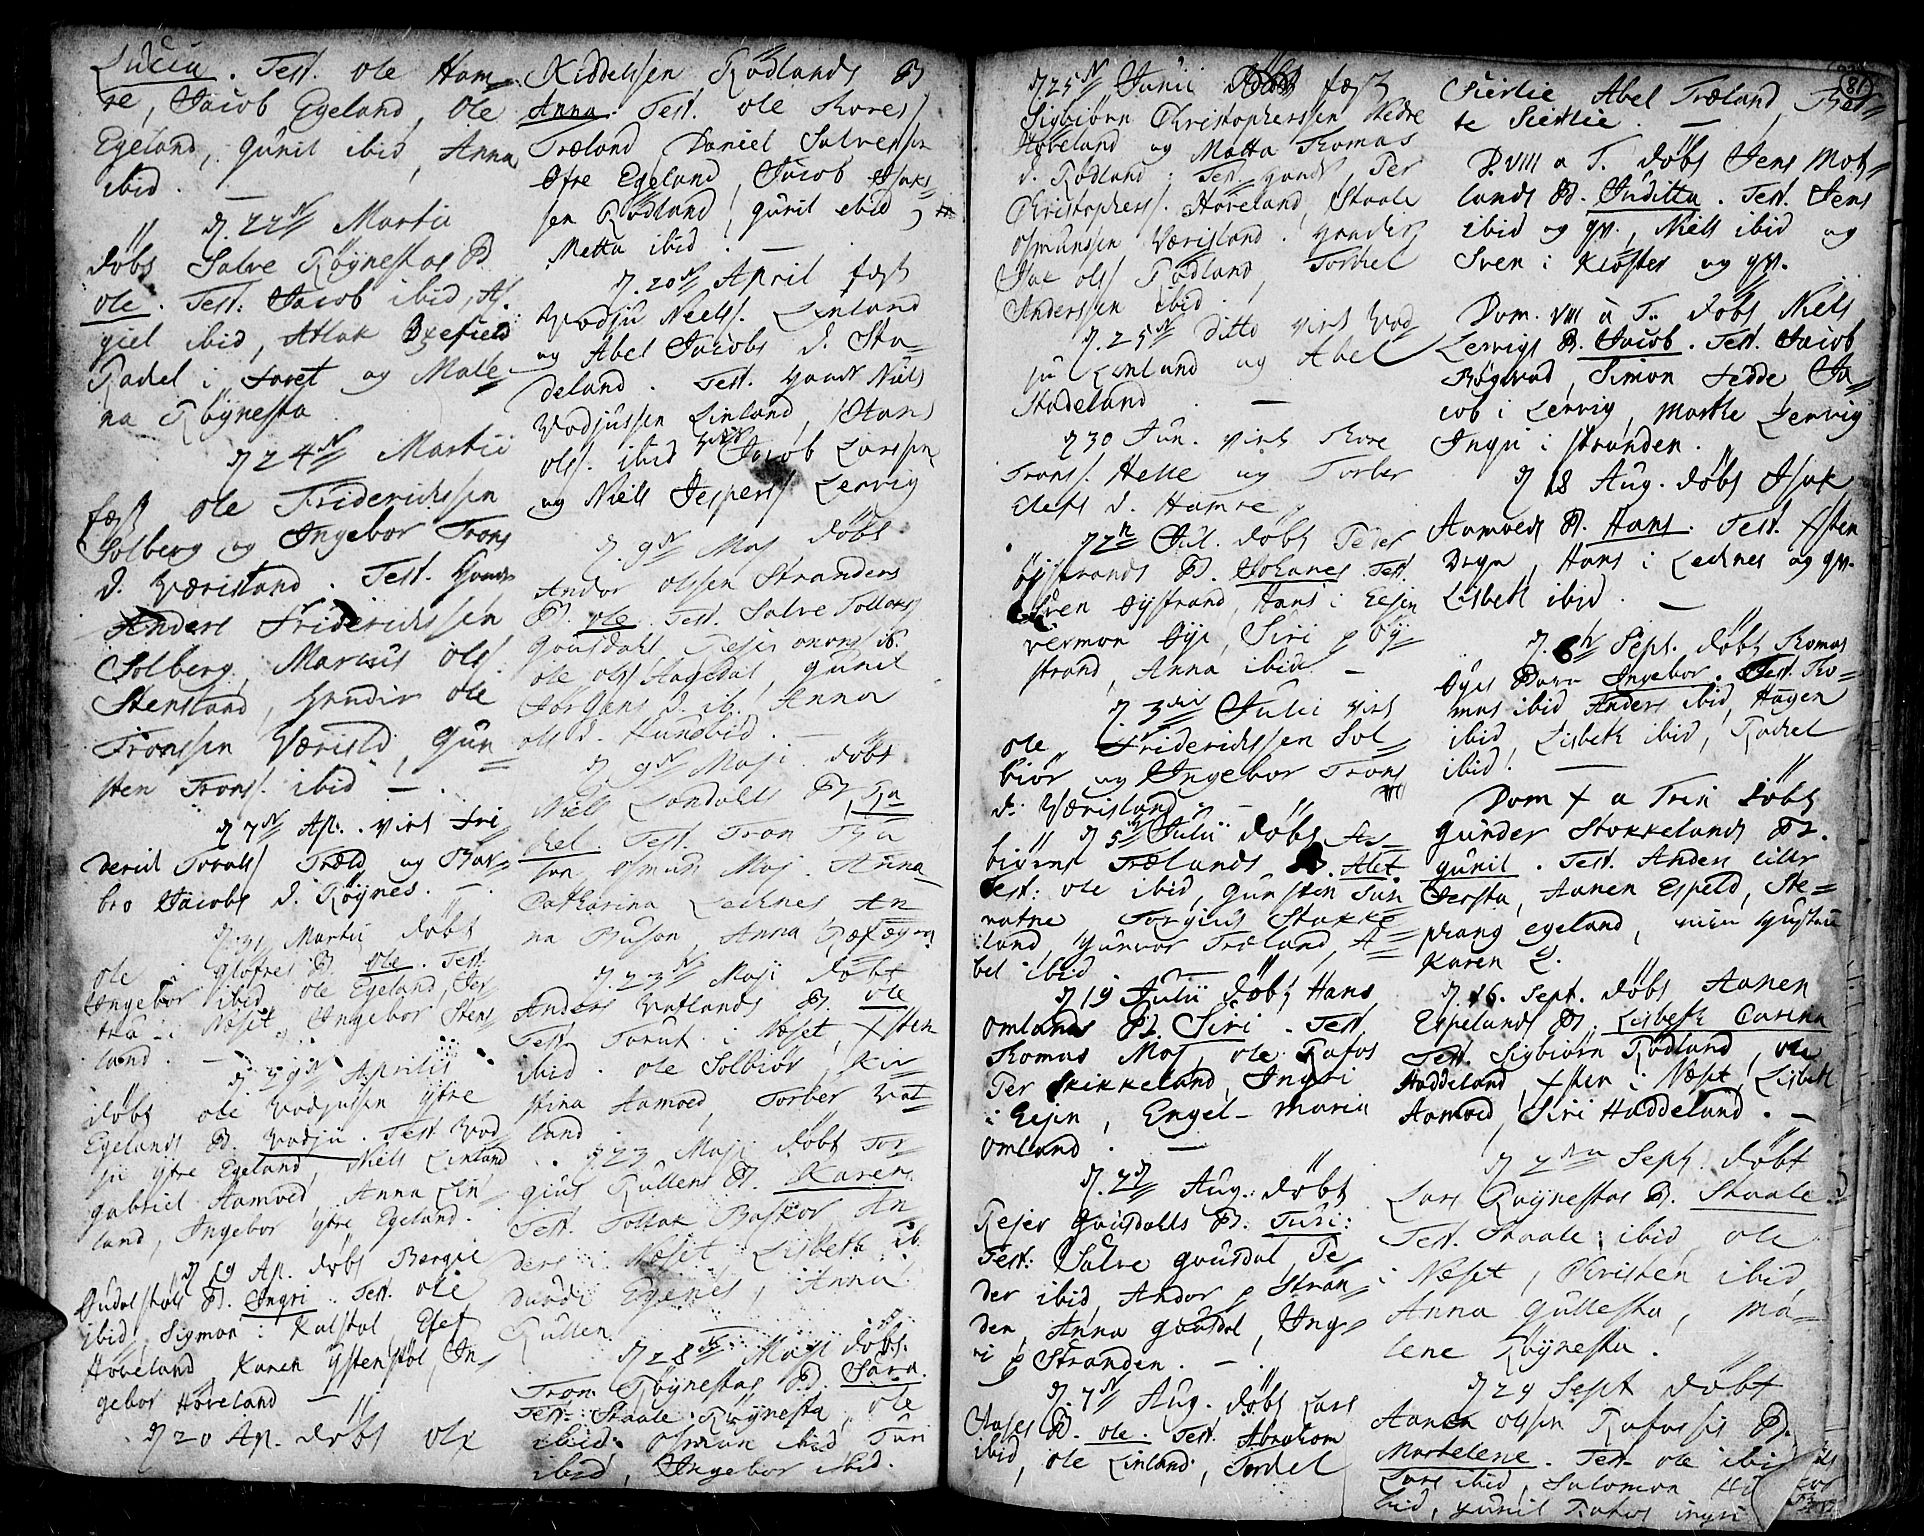 Lucia. Test. Ole Ham-
re, Jacob Egeland, Ole
Egeland, Gunil ibid, Anna
ibid. —
d. 22de Martii
döbt Salve Röÿnestas B.
Ole. Test. Jacob ibid, As-
giel ibid, Atlak Brefield
Rachel i Foret og Male-
na Röÿnesta
d 24de Martii
fæst Ole Friderichssen
Solberg og Ingebor Trons
d. Værisland. Test. hands
Anders Friderichssen
Solberg, Marcus Olss.
Stensland, hendis Ole
Tronssen Værisld, Gun-
sten Trons. ibid —.
d 7de Ap. viet Fri-
derich Træld og
bro Jacobs d. Röÿnes. —.
d. 31 Martii döbt
Ole i Glofres B. Ole. Test.
Ingebor ibid, Ole Egeland,
i Neset, Ingebor Stens
land. —
d 29de Aprilis
döbt Ole Vodjussen ÿtre
Egelands B. Vodju. Test. Vod
ju ÿtre Egeland, Niels Linland
Gabriel Aamoed, Anna Lin
land, Ingebor ÿtre Egeland.
d 19 Ap. döbt Bergie
B. Ingri. Test. Ole
ibid, Sigmon i Kalstol, Elef
Höveland, Karen ÿstenstöl, In-
gebor Höveland —
d 20 Ap. döbt Ole
Kiddelssen Rödlands B
Anna. Test. Ole Thores
Træland Daniel Salvessen
Öfre Egeland, Jacob Isaks-
sen Rödland, Gunil ibid,
Metta ibid. —
d. 20de April fæst
Vodju Niels. Linland
og Abel Jacobs d. Sta-
deland. Test. hands Niels
Vodjussen Linland, Hans
Ols. ibid Jacob Larssen
og Niels Jespers. Lervig
d. 9de Maj döbt
Andor Olssen Strandens
B. Ole. Test. Salve Tollags
Gousdahl, Rejer ib.
Ole Ols Aagedal, Gunil
Jörgens d. ib. Anna
Ols d. —
d. 9de Maji döbt
Niels Londahls B. Ra
chel. Test. Tron
Osmund Moj. Anna
Catharina Lecknes An-
na Buson, Anna
d. 23de Maji döbt
Anders Vatlands B. Ole
Test. i Neset, Østen
ibid. Ole Solbiör, Kir-
stina Aamoed, Torber Vat-
land
d 23 Maji döbt Tor
gius Rullens B. Karen.
Test. Tollak An-
ders i Neset Lisbeth ib.
Egenes, Anna
Rullen.
d 28de Maji döbt
Tron Röÿnestas B. Sara.
Test. Staale Röÿnesta, Ole
ibid, Osmun ibid, Turi
ibid, Ingebor ibid.
81
d 25de Junii fæst
Sigbiörn Christopherssen Nedre
Höbeland og Matta Thomas
d. Rödland. Test. hands, Per
Christophers. Höveland, Staale
Osmunssen Værisland. hendis
Isak Ols Rödland, Torkel
Anderssen ibid.
d. 25de ditto viet Vod
ju Linland og Abel
Stadeland. —
d 30 Jun. viet Thore
Trons. Helle og Torber
Elefs d. Hamre
d 2de Jul. döbt Peter
Öÿstrands B. Johanes. Test.
Sven Öÿstrand, Hans i Eejen
Öÿe, Siri p Öÿ-
strand, Anna ibid —
d. 3die Julii viet
Ole Friderichssen Sol-
biör og Ingebor Trons
d. Værisland. —
d 5te Julii döbt As-
biörns Trælands B. Alet
Test: Ole ibid, Gunsten
Torgius Stokke
land, Gunvor Træland, A-
bel ibid
d 19 Julii döbt Hans
Omlands B. Siri. Test.
Thomas Moj, Ole Rafos
Per Skikkeland, Ingri
i Eejen, Engel-Maria
Omland. —
d. 2de Aug. döbt
Rejer Gousdahls B. Turi:
Test: Salve Gousdal, Pe
der ibid, Andor p Stran
den, Anna Gousdal, Ing-
ri p Stranden. —.
d. 7de Aug. döbt Lars
B. Ole. Test. Abraham
ibid, Ole Linland, Torkel
Sierlie Abel Træland,
te Sierlie. —
D. VIII a T. döbt Jens Mob-
lands B. Juditta. Test. Jens
ibid og qv., Niels ibid og
Sven i Kloster og qv.
Dom. VIII a T. döbt Niels
Lervigs B. Jacob. Test. Jacob
Röÿwad, Simon Fedde, Ja-
cob i Lervig, Marthe Lervig
Ingri i Stranden.
d 18 Aug. döbt Isak
Aamoeds B. Hans. Test. Østen
Hans i Lecknes og qv.
Lisbeth ibid. —
d. 8de Sept. döbt Thomas
Öÿes Barn Ingebor. Test. Tho-
mas ibid Anders ibid, Hagen
ibid, Lisbeth ibid, Rachel
ibid. —
Dom X a Trin döbt
Gunder Stokkelands B.
Gunil. Test. Anders Lille
Jersta, Aanen Espeld, Ste-
phang Egeland, min hustrue
Karen L.
d. 16. Sept. döbt Aanen
Espelands B. Lisbeth Carina
Test. Sigbiörn Rödland, Ole
Haddeland, Østen i Neset, Lisbeth
Aamoed, Siri Haddeland. —
d 2den Sept. döbt
Lars Röÿnestas B. Staale.
Test. Staale ibid Ole
i Neset, Christen ibid
Anna Gullesta, Ma-
lene Röÿnesta.
d 29 Sept döbt
Aanen Olssen Rafosses B.
Marhelene. Test. Ole ibid
Lars ibid, Salomon
ibid, Gunil Rafos ingri